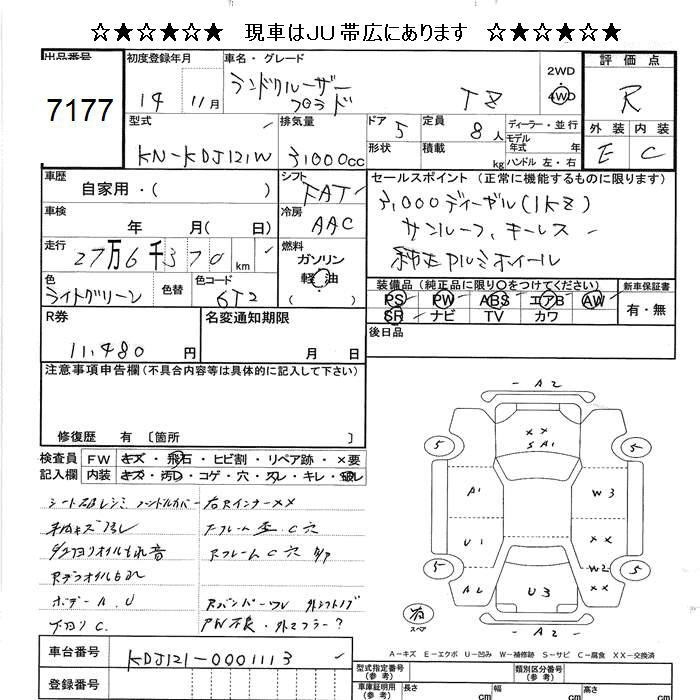 ☆★☆★☆★ 現車はJU帯広にあります ☆★☆★☆★
出品番号 7177
初度登録年月 14 11月
車名・グレード ランドクルーザー プラド TZ
2WD 4WD
評価点 R
外装 E 内装 C
型式 KN-KDJ121W
排気量 3,000cc
ドア 5 形状
定員 8人 積載 kg
ディーラー・並行
モデル年式 年式
ハンドル 左・右
車歴 自家用・( )
シフト FAT
セールスポイント (正常に機能するものに限ります)
3,000ディーゼル(1KZ)
サンルーフ、キーレス
純正アルミホイール
車検 年 月( 日)
冷房 AAC
走行 27万6千370km
燃料 ガソリン 軽油
色 ライトグリーン 色替 色コード 6T2
装備品 (純正品に限り○をつけてください)
PS PW ABS エアB AW
SR ナビ TV カワ
新車保証書 有・無
R券 11,480円
名変通知期限 月 日
後日品
注意事項申告欄 (不具合内容等は具体的に記入して下さい)
修復歴 有 〔箇所 〕
検査員記入欄
FW キズ・飛石・ヒビ割・リペア跡・×要
内装 キズ・汚レ・コゲ・穴・スレ・キレ・破レ
ハンドルカバー
右Rインナーメメ
C穴
オイルもれ 音
Rフレーム C穴
Rデフオイルもれ
ボデー A.U
下廻り C.
PW不良・外マフラー?
A2
××
SA1
5 5
A1 W3
U1 W2 ××
5 5
A2 U3 ××
A2
スペア
A-キズ E-エクボ U-凹み W-補修跡 S-サビ C-腐食 XX-交換済
車台番号 KDJ121-0001113
登録番号
型式指定番号 (参考)
類別区分番号 (参考)
車庫証明用 (参考) 長さ cm 幅 cm 高さ cm